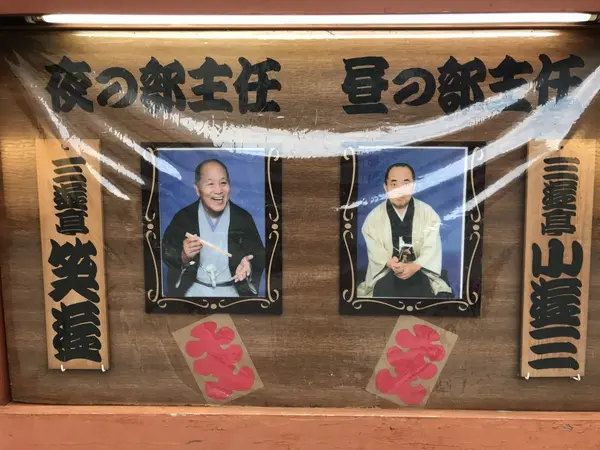 昼の部主任
三遊亭 小遊三
夜の部主任
三遊亭 笑遊